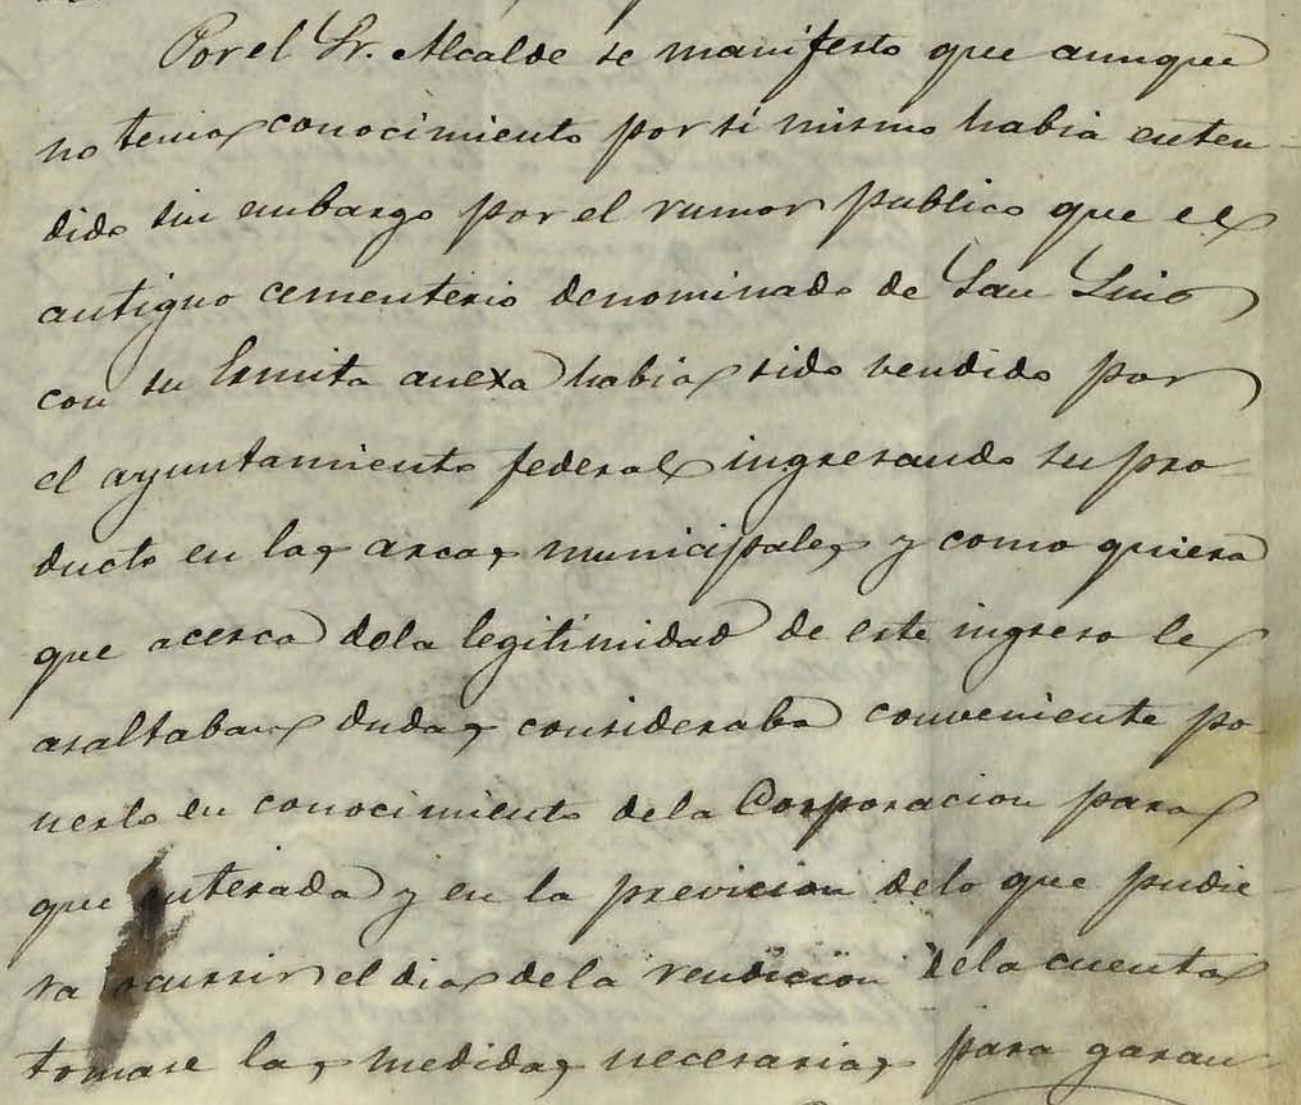 Por el Sr. Alcalde se manifesto que aunque
no tenia conocimiento por si mismo habia enten-
dido sin embargo por el rumor publico que el
antiguo cementerio denominado de San Lino
con su Ermita anexa habia sido vendido por
el ayuntamiento federal ingresando su pro-
ducto en las arcas municipales y como quiera
que acerca dela legitimidad de este ingreso le
asaltaban dudas consideraba conveniente po-
nerlo en conocimiento dela Corporacion para
que enterada y en la previcion delo que pudie-
ra ocurrir el dia dela rendicion dela cuenta
tomase las medidas necesarias para garan-